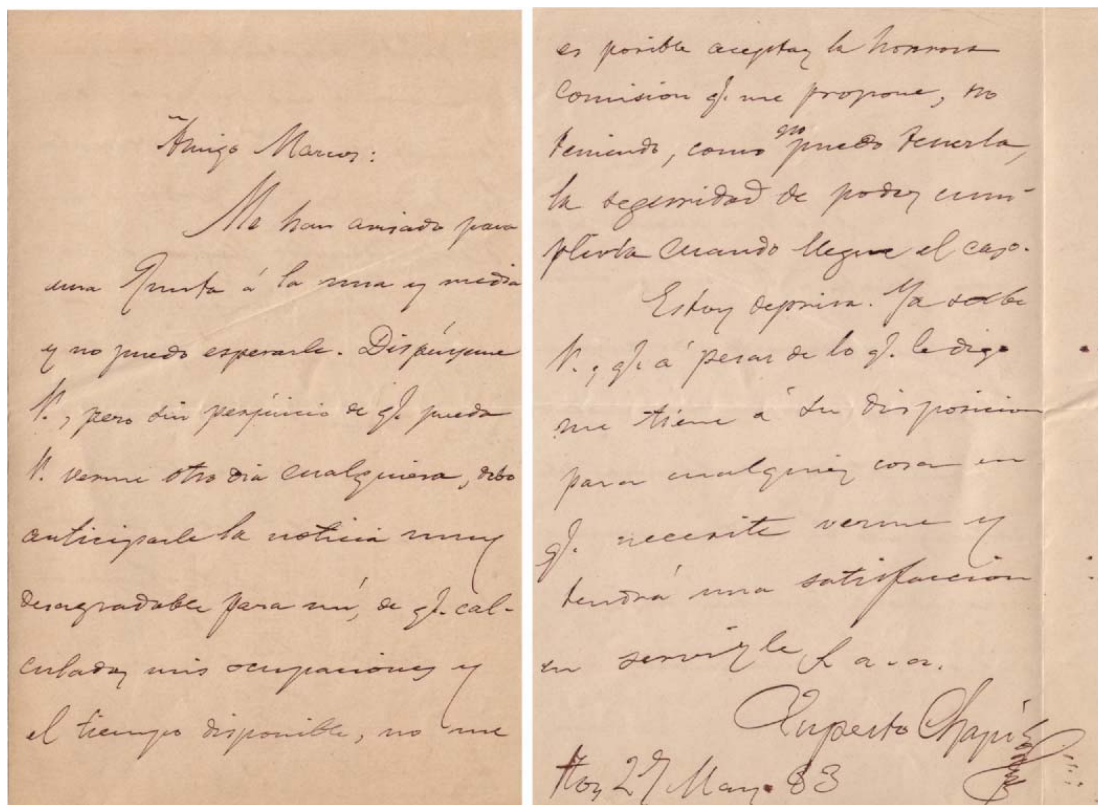 Amigo Marcos:
Me han avisado para
una Junta á la una y media
y no puedo esperarle. Dispénseme
V., pero sin perjuicio de q. pueda
V. verme otro dia cualquiera, debo
anticiparle la noticia muy
desagradable para mí, de q. cal-
culadas mis ocupaciones y
el tiempo disponible, no me
es posible aceptar la honrosa
comision q. me propone, no
teniendo, como no puedo tenerla,
la seguridad de poder cum-
plirla cuando llegue el caso.
Estoy deprisa. Ya sabe
V., q. á pesar de lo q. le digo
me tiene á su disposicion
para cualquier cosa en
q. necesite verme y
tendrá una satisfaccion
en servirle s. a. a.
Ruperto Chapí
Hoy 27 May. 83